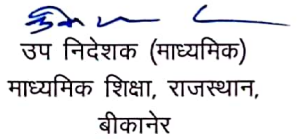 उप निदेशक (माध्यमिक)
माध्यमिक शिक्षा, राजस्थान,
बीकानेर